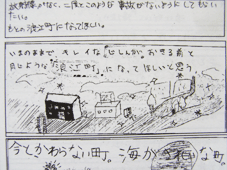 故発電のなく、二度とこのような事故がないようにしてもらい
たい。
もとの浪江町になってほしい。
いままでキレイな「じしんがおきる前と
同じような"浪江町"になってほしいと思う。
今とかわらない町。海がきれいな町。